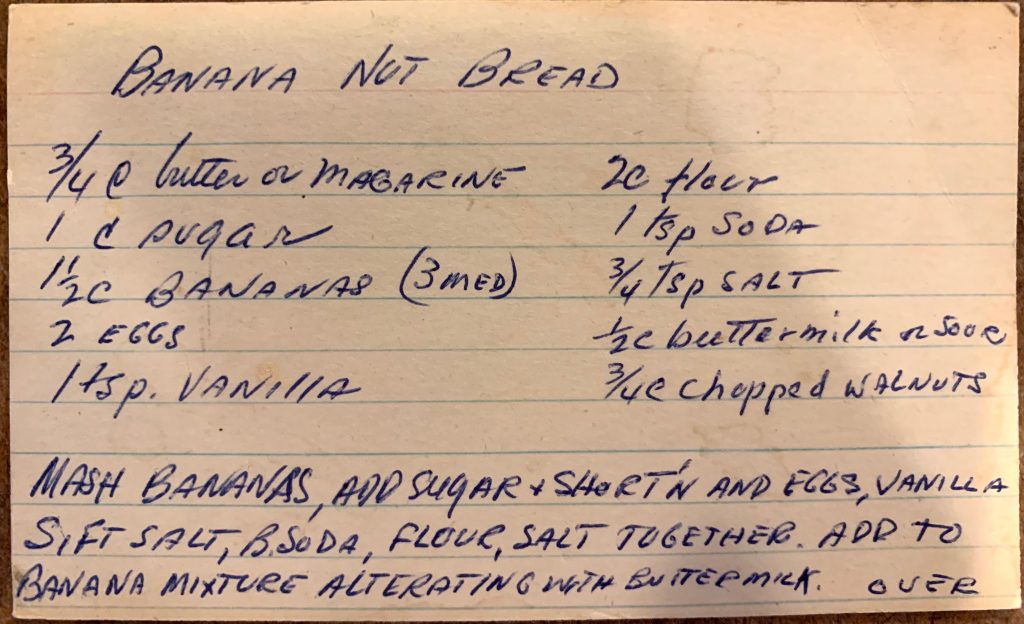 BANANA NUT BREAD
3/4 C butter or MAGARINE
1 C sugar
1 1/2 C BANANAS (3 MED)
2 EGGS
1 tsp. VANILLA
2C flour
1 tsp SODA
3/4 tsp SALT
1/2C buttermilk or SOUR
3/4C chopped WALNUTS
MASH BANANAS, ADD SUGAR + SHORT'N AND EGGS, VANILLA
SIFT SALT, B.SODA, FLOUR, SALT TOGETHER. ADD TO
BANANA MIXTURE ALTERATING WITH BUTTERMILK. OVER